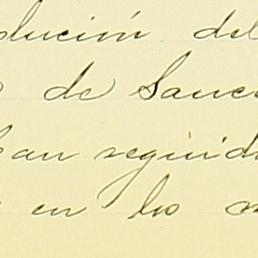 olución del
de Sanc
han seguid
en los